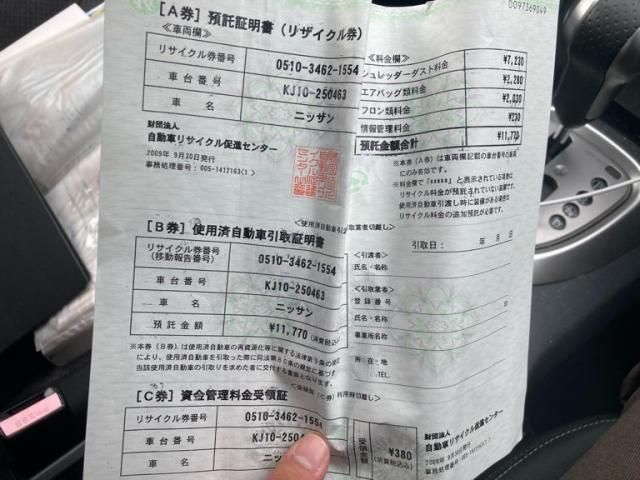 0097369049
[A券] 預託証明書 (リサイクル券)
≪車両欄≫
リサイクル券番号 0510-3462-1554
車台番号 KJ10-250463
車 名 ニッサン
≪料金欄≫
シュレッダーダスト料金 ¥7,230
エアバッグ類料金 ¥2,280
フロン類料金
情報管理料金 ¥230
預託金額合計 ¥11,770
財団法人
自動車リサイクル促進センター
2009年 9月30日発行
※本券(A券)は車両欄記載の車台番号の車両
にのみ有効です。
※料金欄で「*****」と表示されている項目は
リサイクル料金が預託されていない装備です。
使用済自動車引渡し時に装備がある場合は
リサイクル料金の追加預託が必要です。
[B券] 使用済自動車引取証明書
リサイクル券番号
(移動報告番号) 0510-3462-1554
車台番号 KJ10-250463
車 名 ニッサン
預託金額 ¥11,770 (消費税込み)
引取日: 年 月 日
≪引渡者≫
氏名・名称
≪引取業者≫
登録番号
氏名・名称
事業所名
所在地
TEL.
※本券(B券)は使用済自動車の再資源化等に関する法律第
により、使用済自動車を引取った際に同法第80条の規定に基づき
当該使用済自動車の引取りを求めた者に交付する書面となります。
[C券] 資金管理料金受領証
リサイクル券番号 0510-3462-1554
車台番号 KJ10-2504
車 名 ニッサン
受領金額 ¥380
(消費税込み)
財団法人
自動車リサイクル促進センター
2009年 9月30日発行